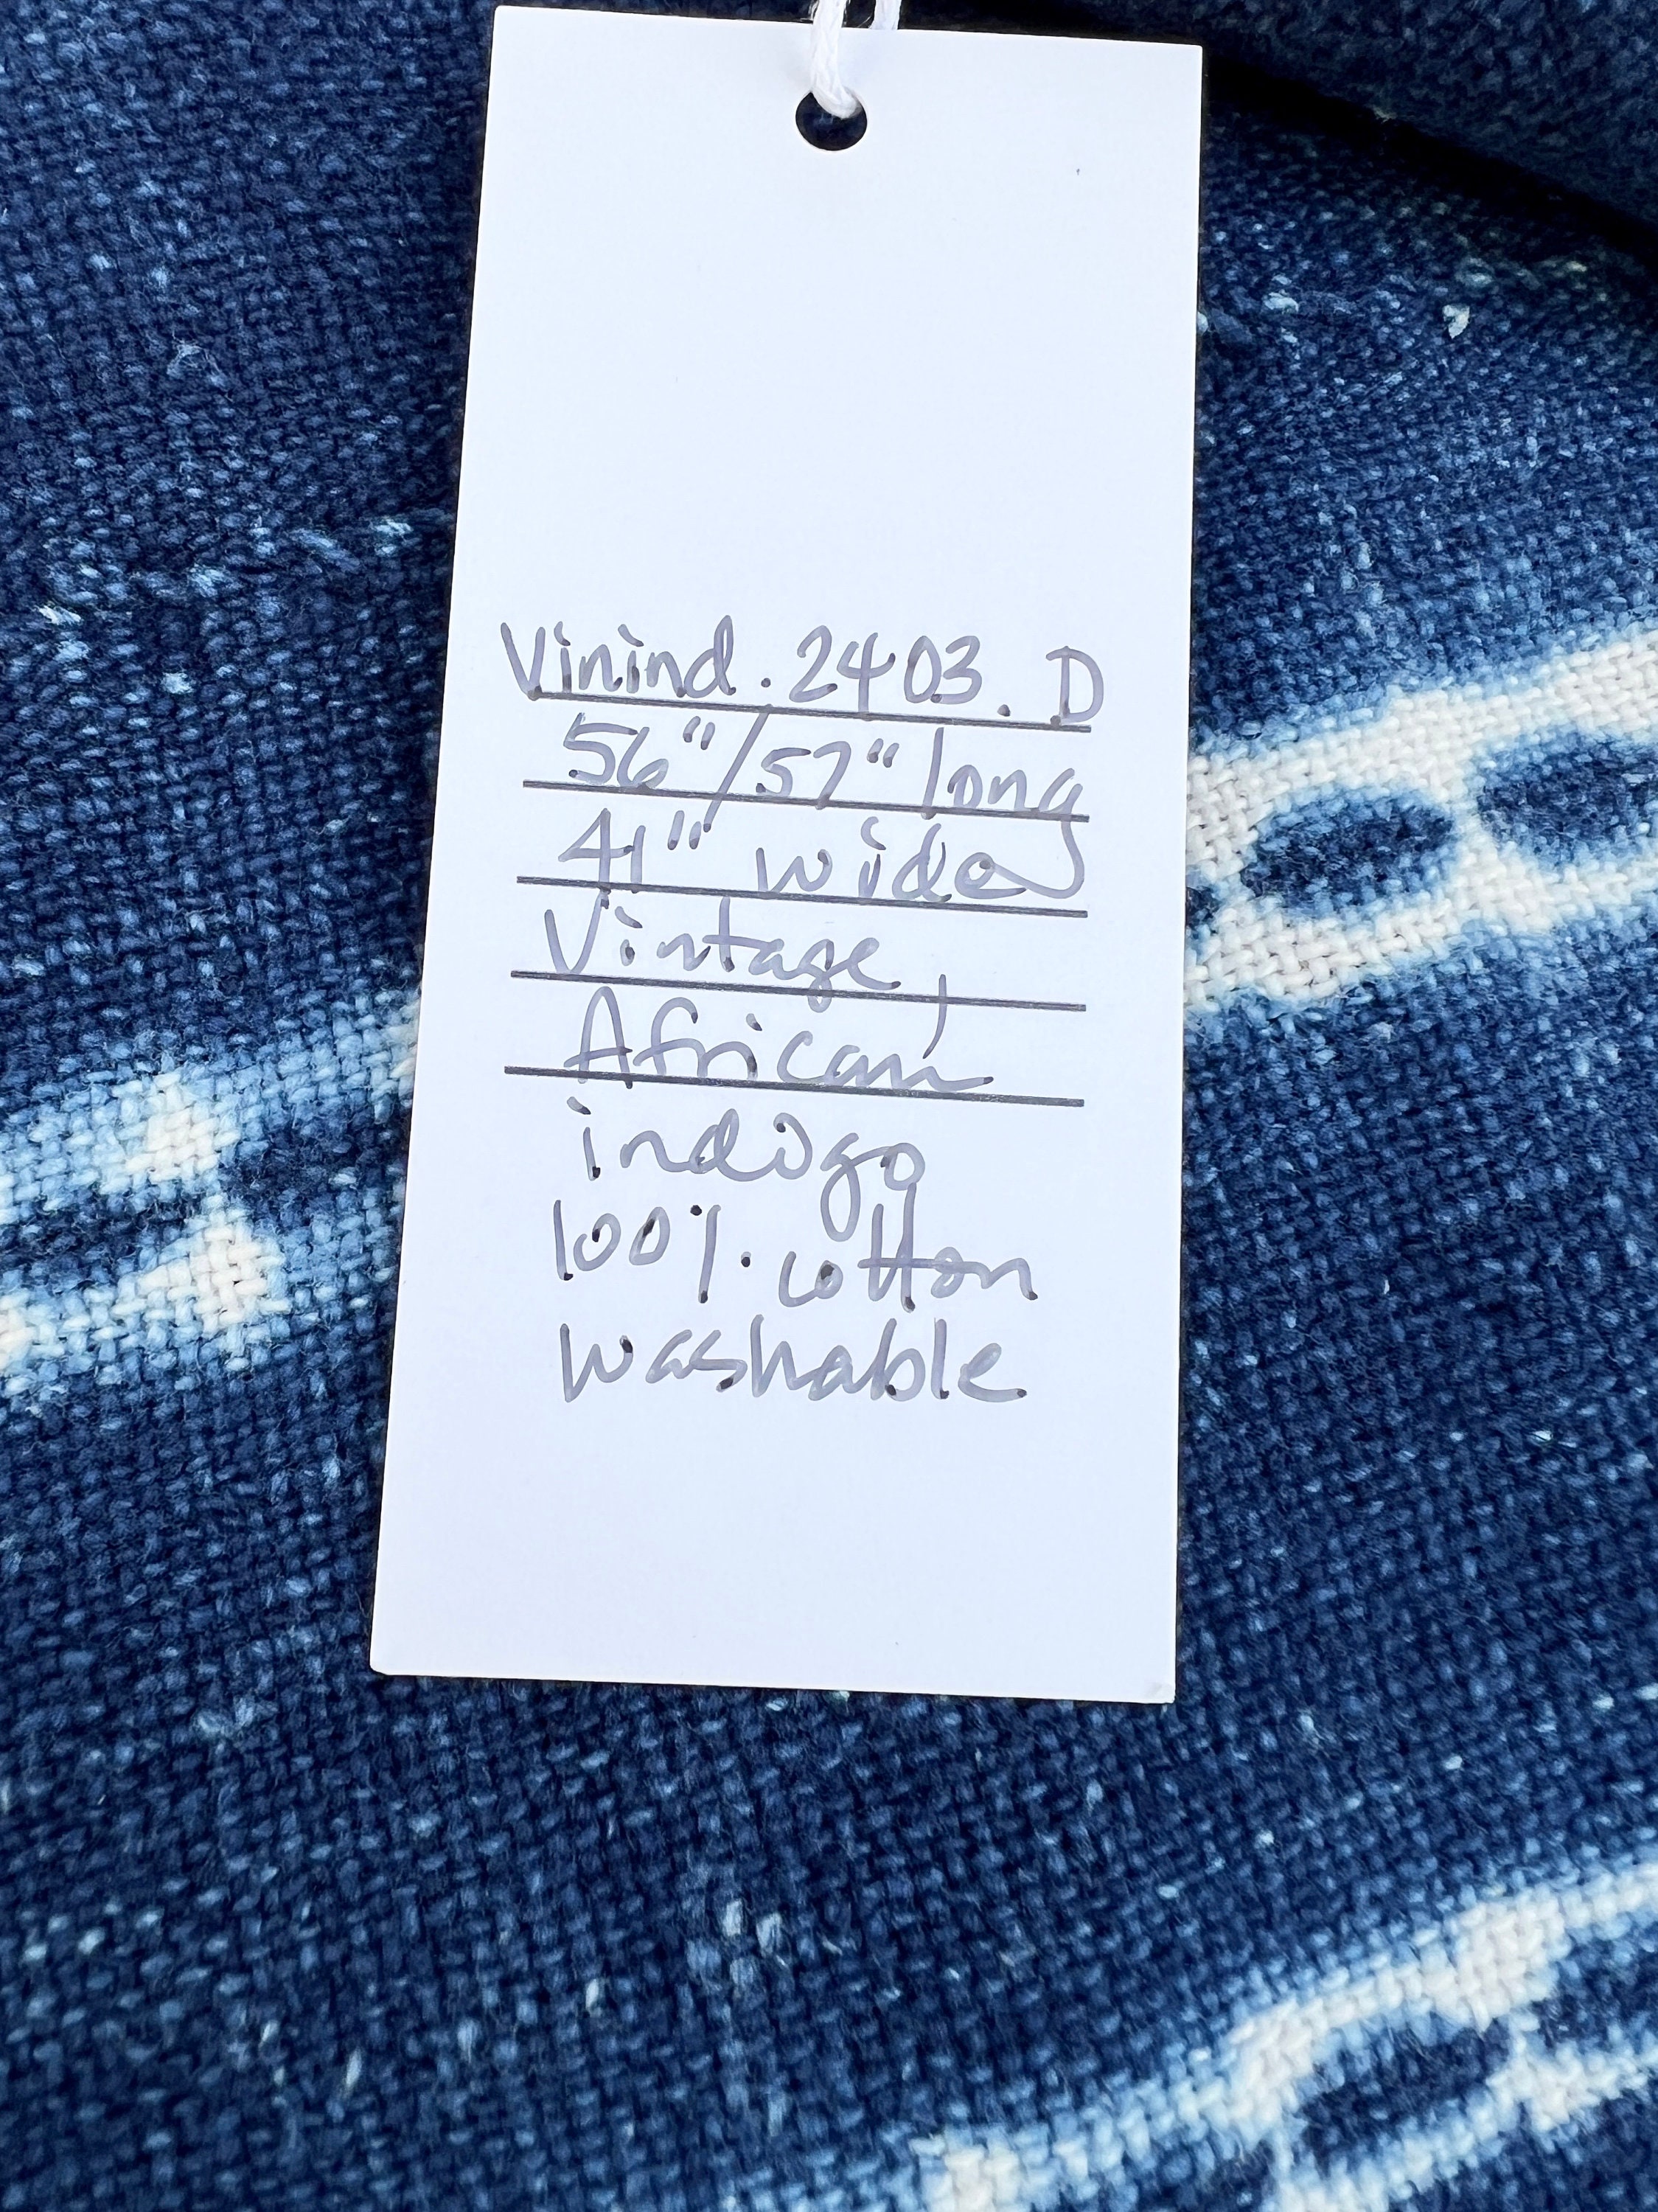 Vinind. 2403. D
56"/57" long
41" wide
Vintage,
African
indigo
100% cotton
washable